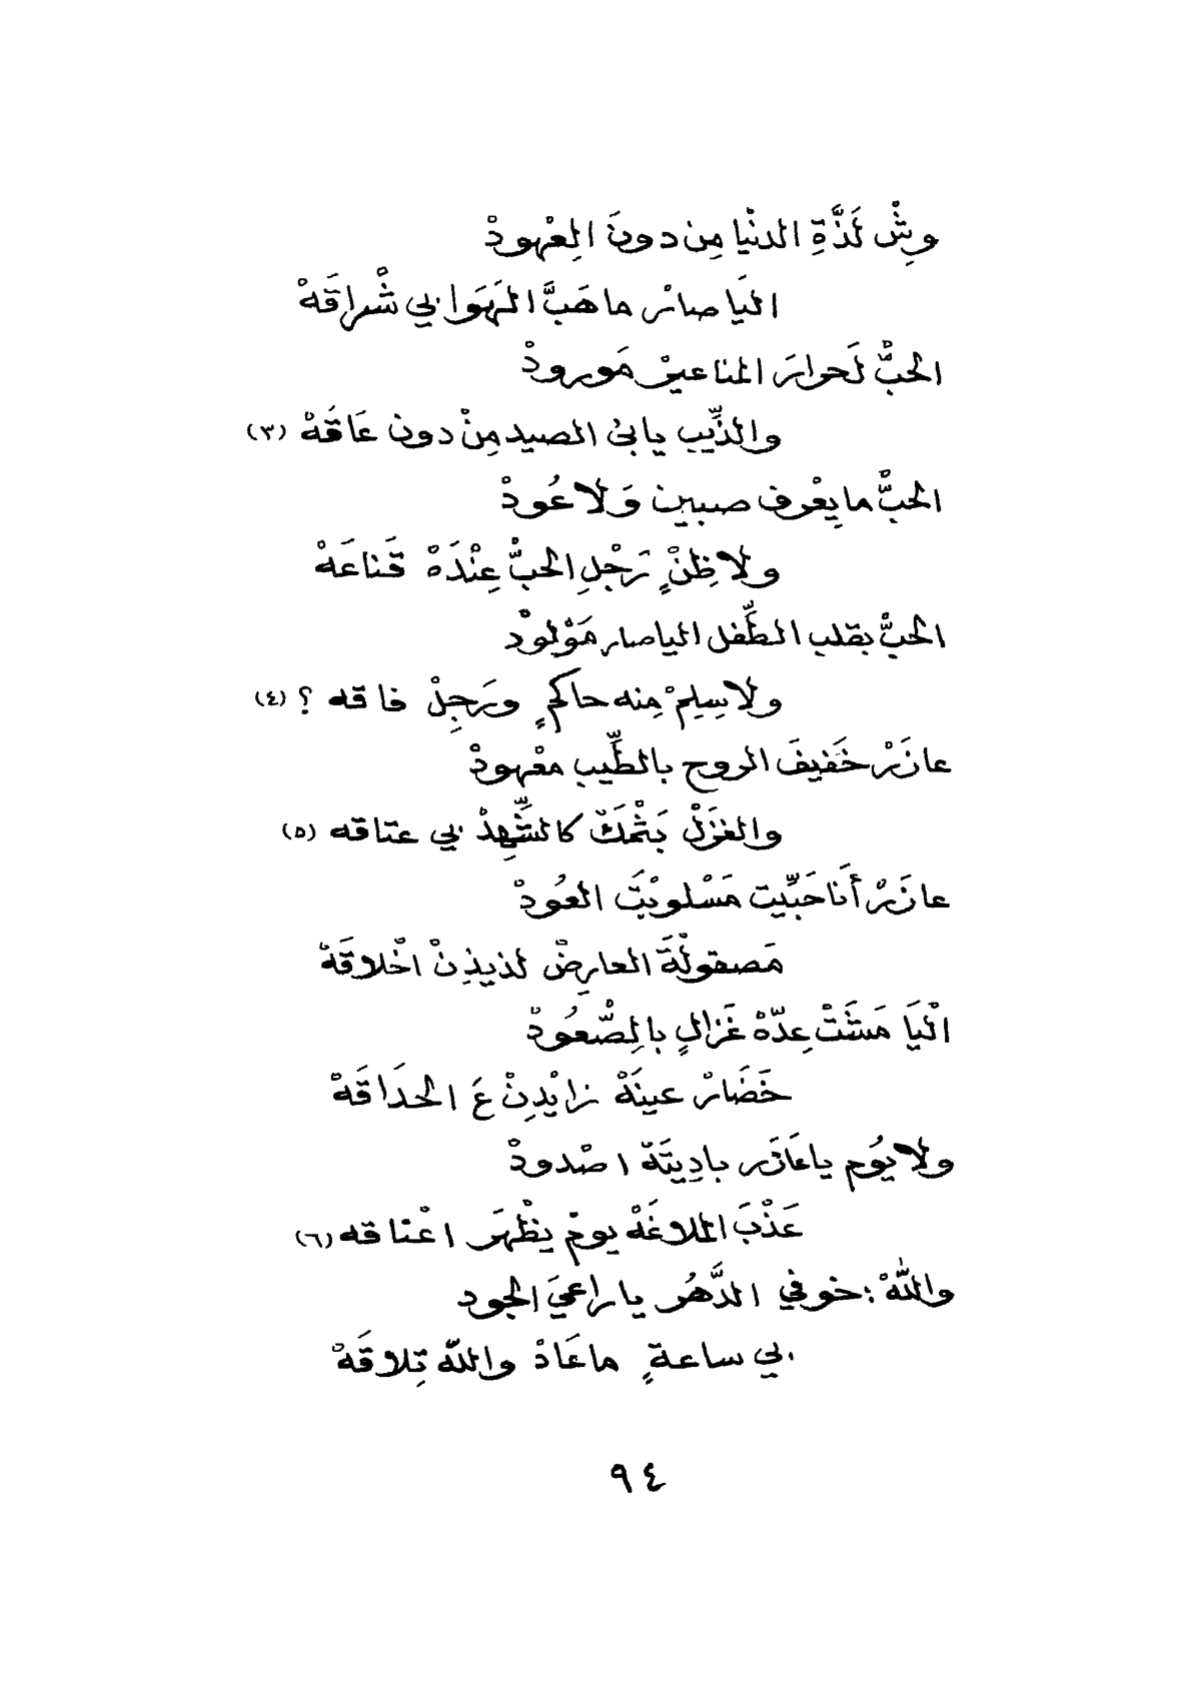 وِشْ لَذَّةِ الدنْيا مِن دونَ الِعْهودْ
اليَا صارْ ما هَبَّ الهَوَا بي شْراقَهْ
الحبّْ لَحرارَ المناعيرْ مَورودْ
والذِّيب يابىْ الصيد مِنْ دون عَاقَهْ (٣)
الحبّْ ما يِعْرف صبيين وَلا عُودْ
ولا ظِنْ رَجْلٍ الحبّْ عِنْدَهْ قَناعَهْ
الحبّْ بقلب الطِّفل الياصار مَوْلودْ
ولا سِلِمْ مِنه حاكمٍ ورَجِلْ فاقه ؟ (٤)
عازَرْ خَفيفَ الروح بالطِّيب معْهودْ
والغزَلْ بَثْمَكْ كالشِّهِدْ بي عتاقه (٥)
عازَرْ أَنا حَبِّيت مَسْلوبْتَ العُودْ
مَصقولْةَ العارِضْ لذيذِنْ اخْلاقَهْ
الْيَا مَشَتْ عِدّهْ غَزالٍ بالِصّْعُودْ
خَضَارْ عينَهْ زايْدِنْ عَ الحدَاقَهْ
ولا يوُم يا عَازَر بادِيتَهْ اصْدودْ
عَذْبَ الملاغَهْ يومْ يظْهَر اعْناقه (٦)
واللهْ : خوفي الدَّهُر يا راعيَ الجود
بي ساعةٍ ما عَادْ واللّه تِلاقَهْ
٩٤